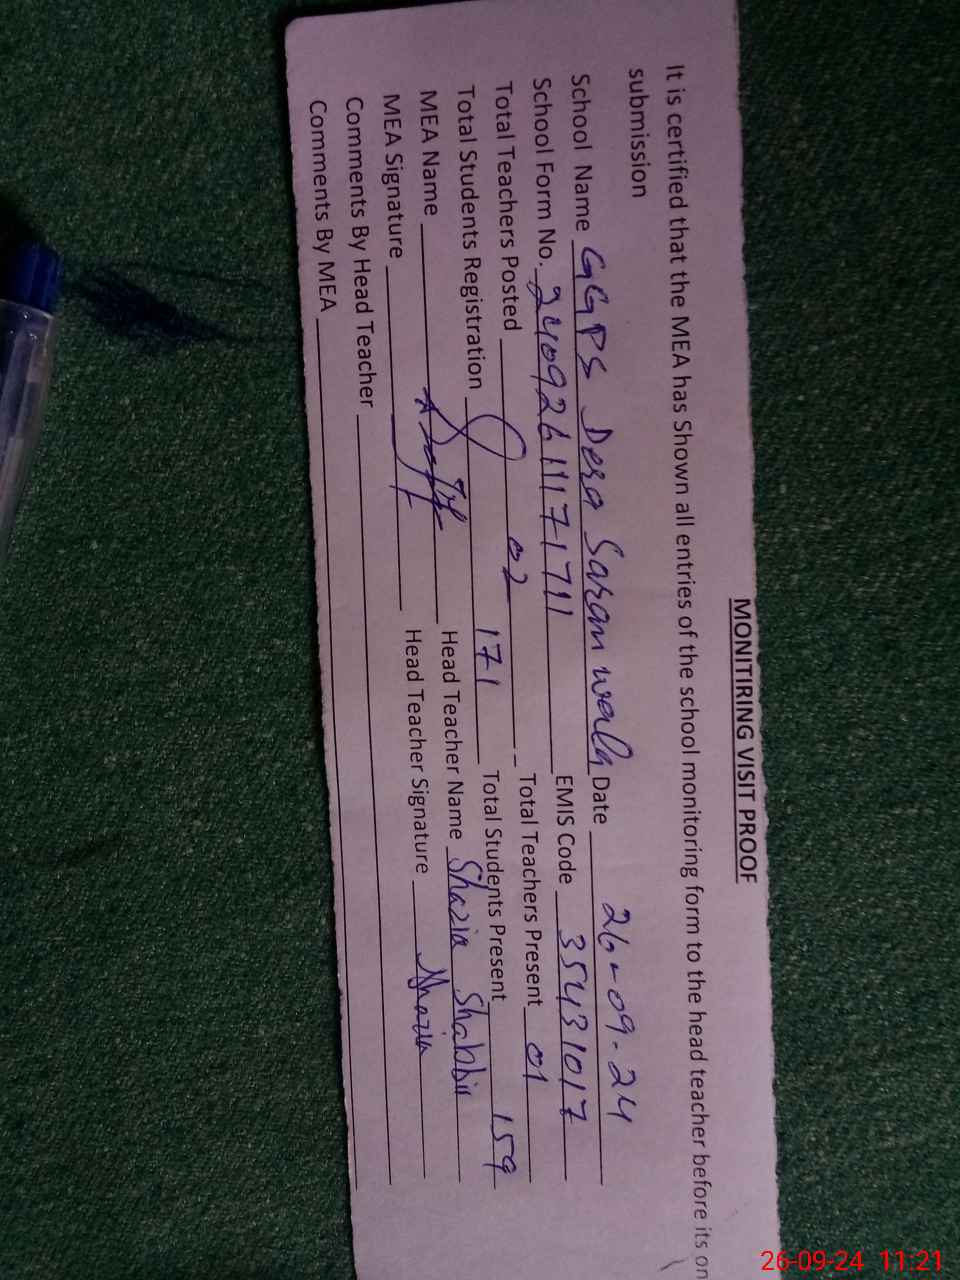 MONITIRING VISIT PROOF
It is certified that the MEA has Shown all entries of the school monitoring form to the head teacher before its on
submission
School Name GGPS Dera Saran wala Date 26-09-24
School Form No. 24092611171711 EMIS Code 35431017
Total Teachers Posted 02 Total Teachers Present 01
Total Students Registration 171 Total Students Present 159
MEA Name Head Teacher Name Shazia Shabbir
MEA Signature Head Teacher Signature Shazia
Comments By Head Teacher
Comments By MEA
26-09-24 11:21